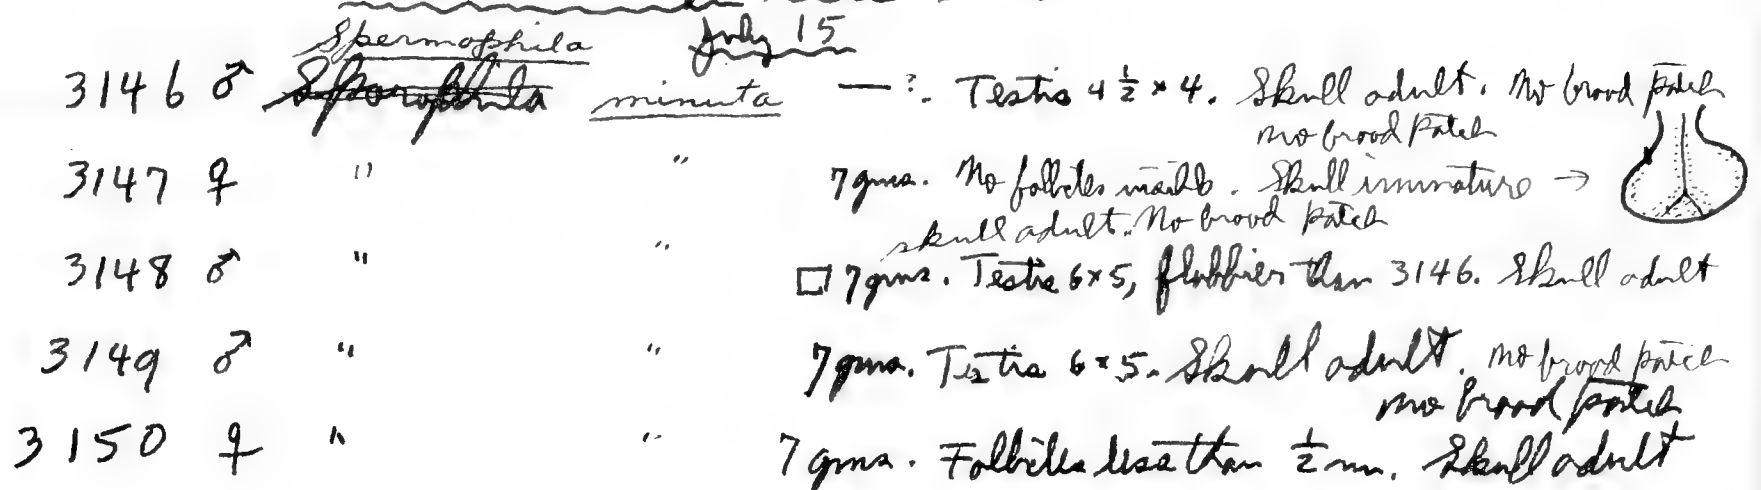 Spermophila July 15
3146 ♂ Sporophila minuta — ?. Testis 4 ½ × 4. Skull adult. No brood patch
no brood patch
3147 ♀ " " 7 gms. No follicles visible. Skull immature →
skull adult. No brood patch
3148 ♂ " " □ 7 gms. Testis 6×5, flabbier than 3146. Skull adult
3149 ♂ " " 7 gms. Testis 6×5. Skull adult. no brood patch
no brood patch
3150 ♀ " " 7 gms. Follicles less than ½ mm. Skull adult